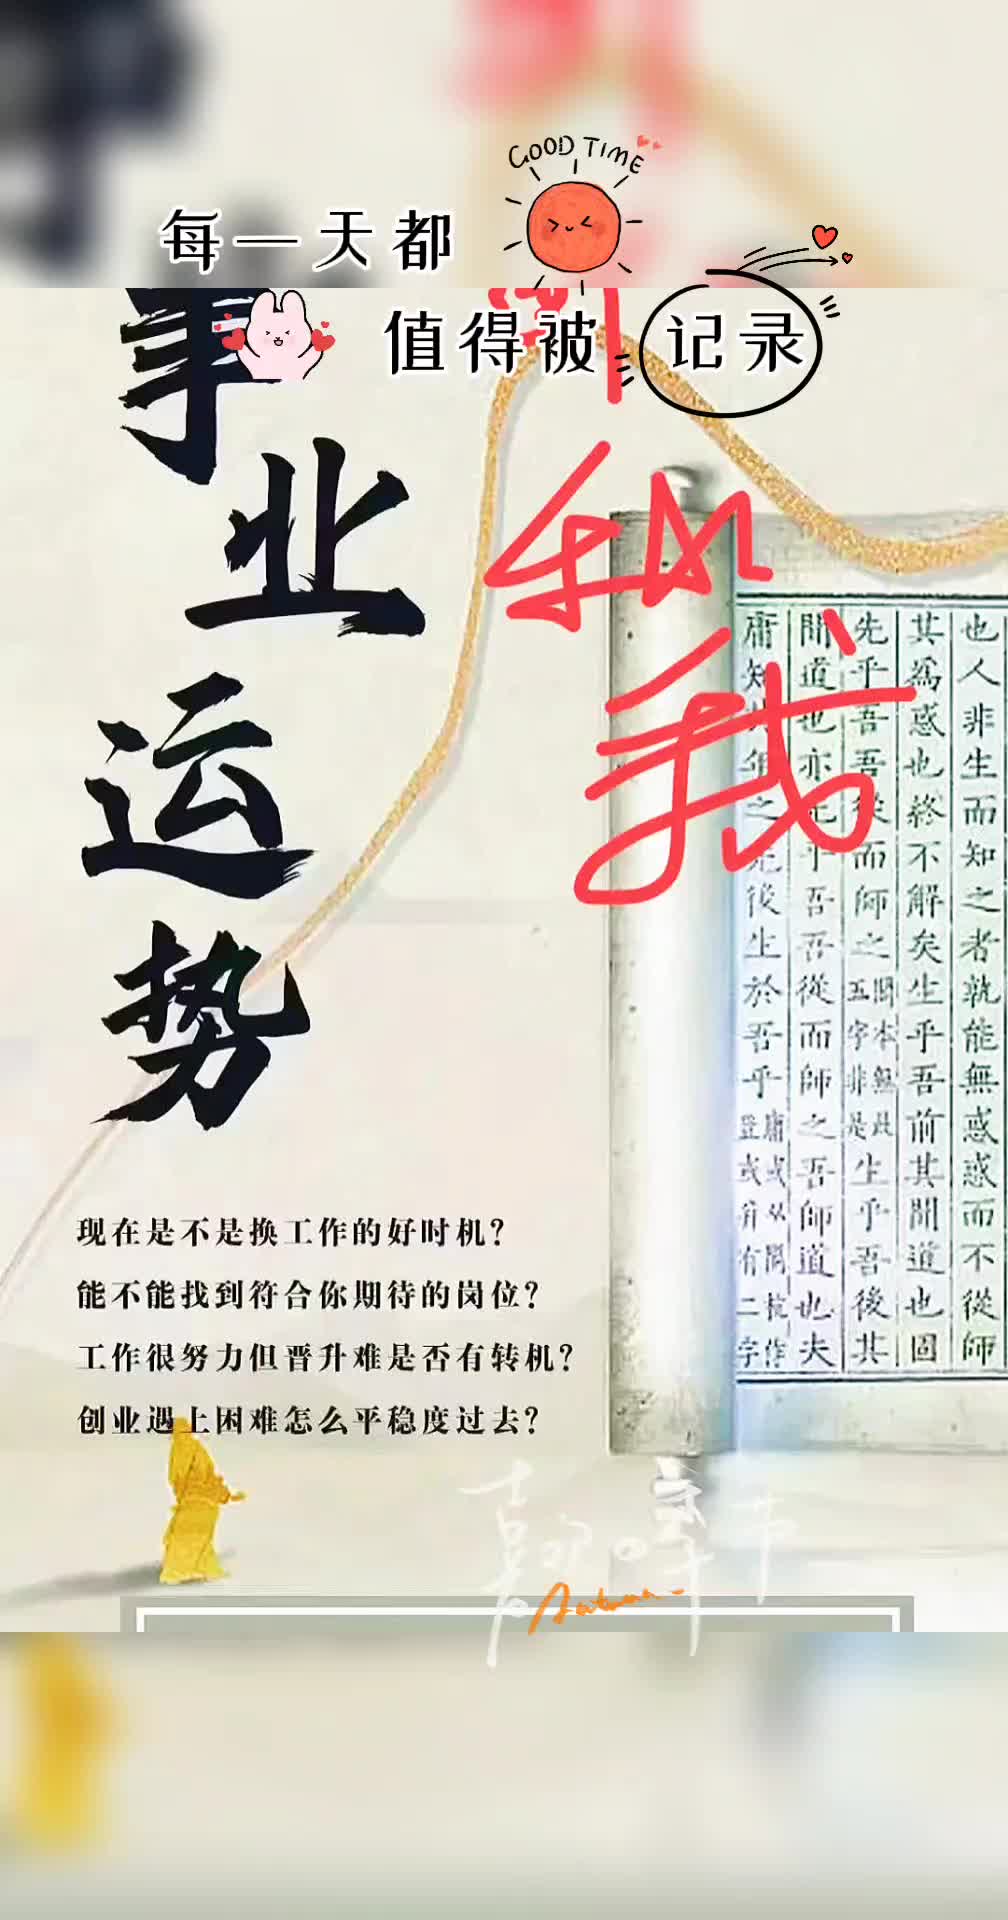 GOOD TIME
每一天都
值得被记录
事业运势
私我
现在是不是换工作的好时机？
能不能找到符合你期待的岗位？
工作很努力但晋升难是否有转机？
创业遇上困难怎么平稳度过去？
也人非生而知之者孰能無惑惑而不從師
其爲惑也終不解矣生乎吾前其聞道也固
先乎吾吾從而師之閩本無此五字非是生乎吾後其
聞道也亦先乎吾吾從而師之吾師道也夫
庸知其年之先後生於吾乎
Autumn